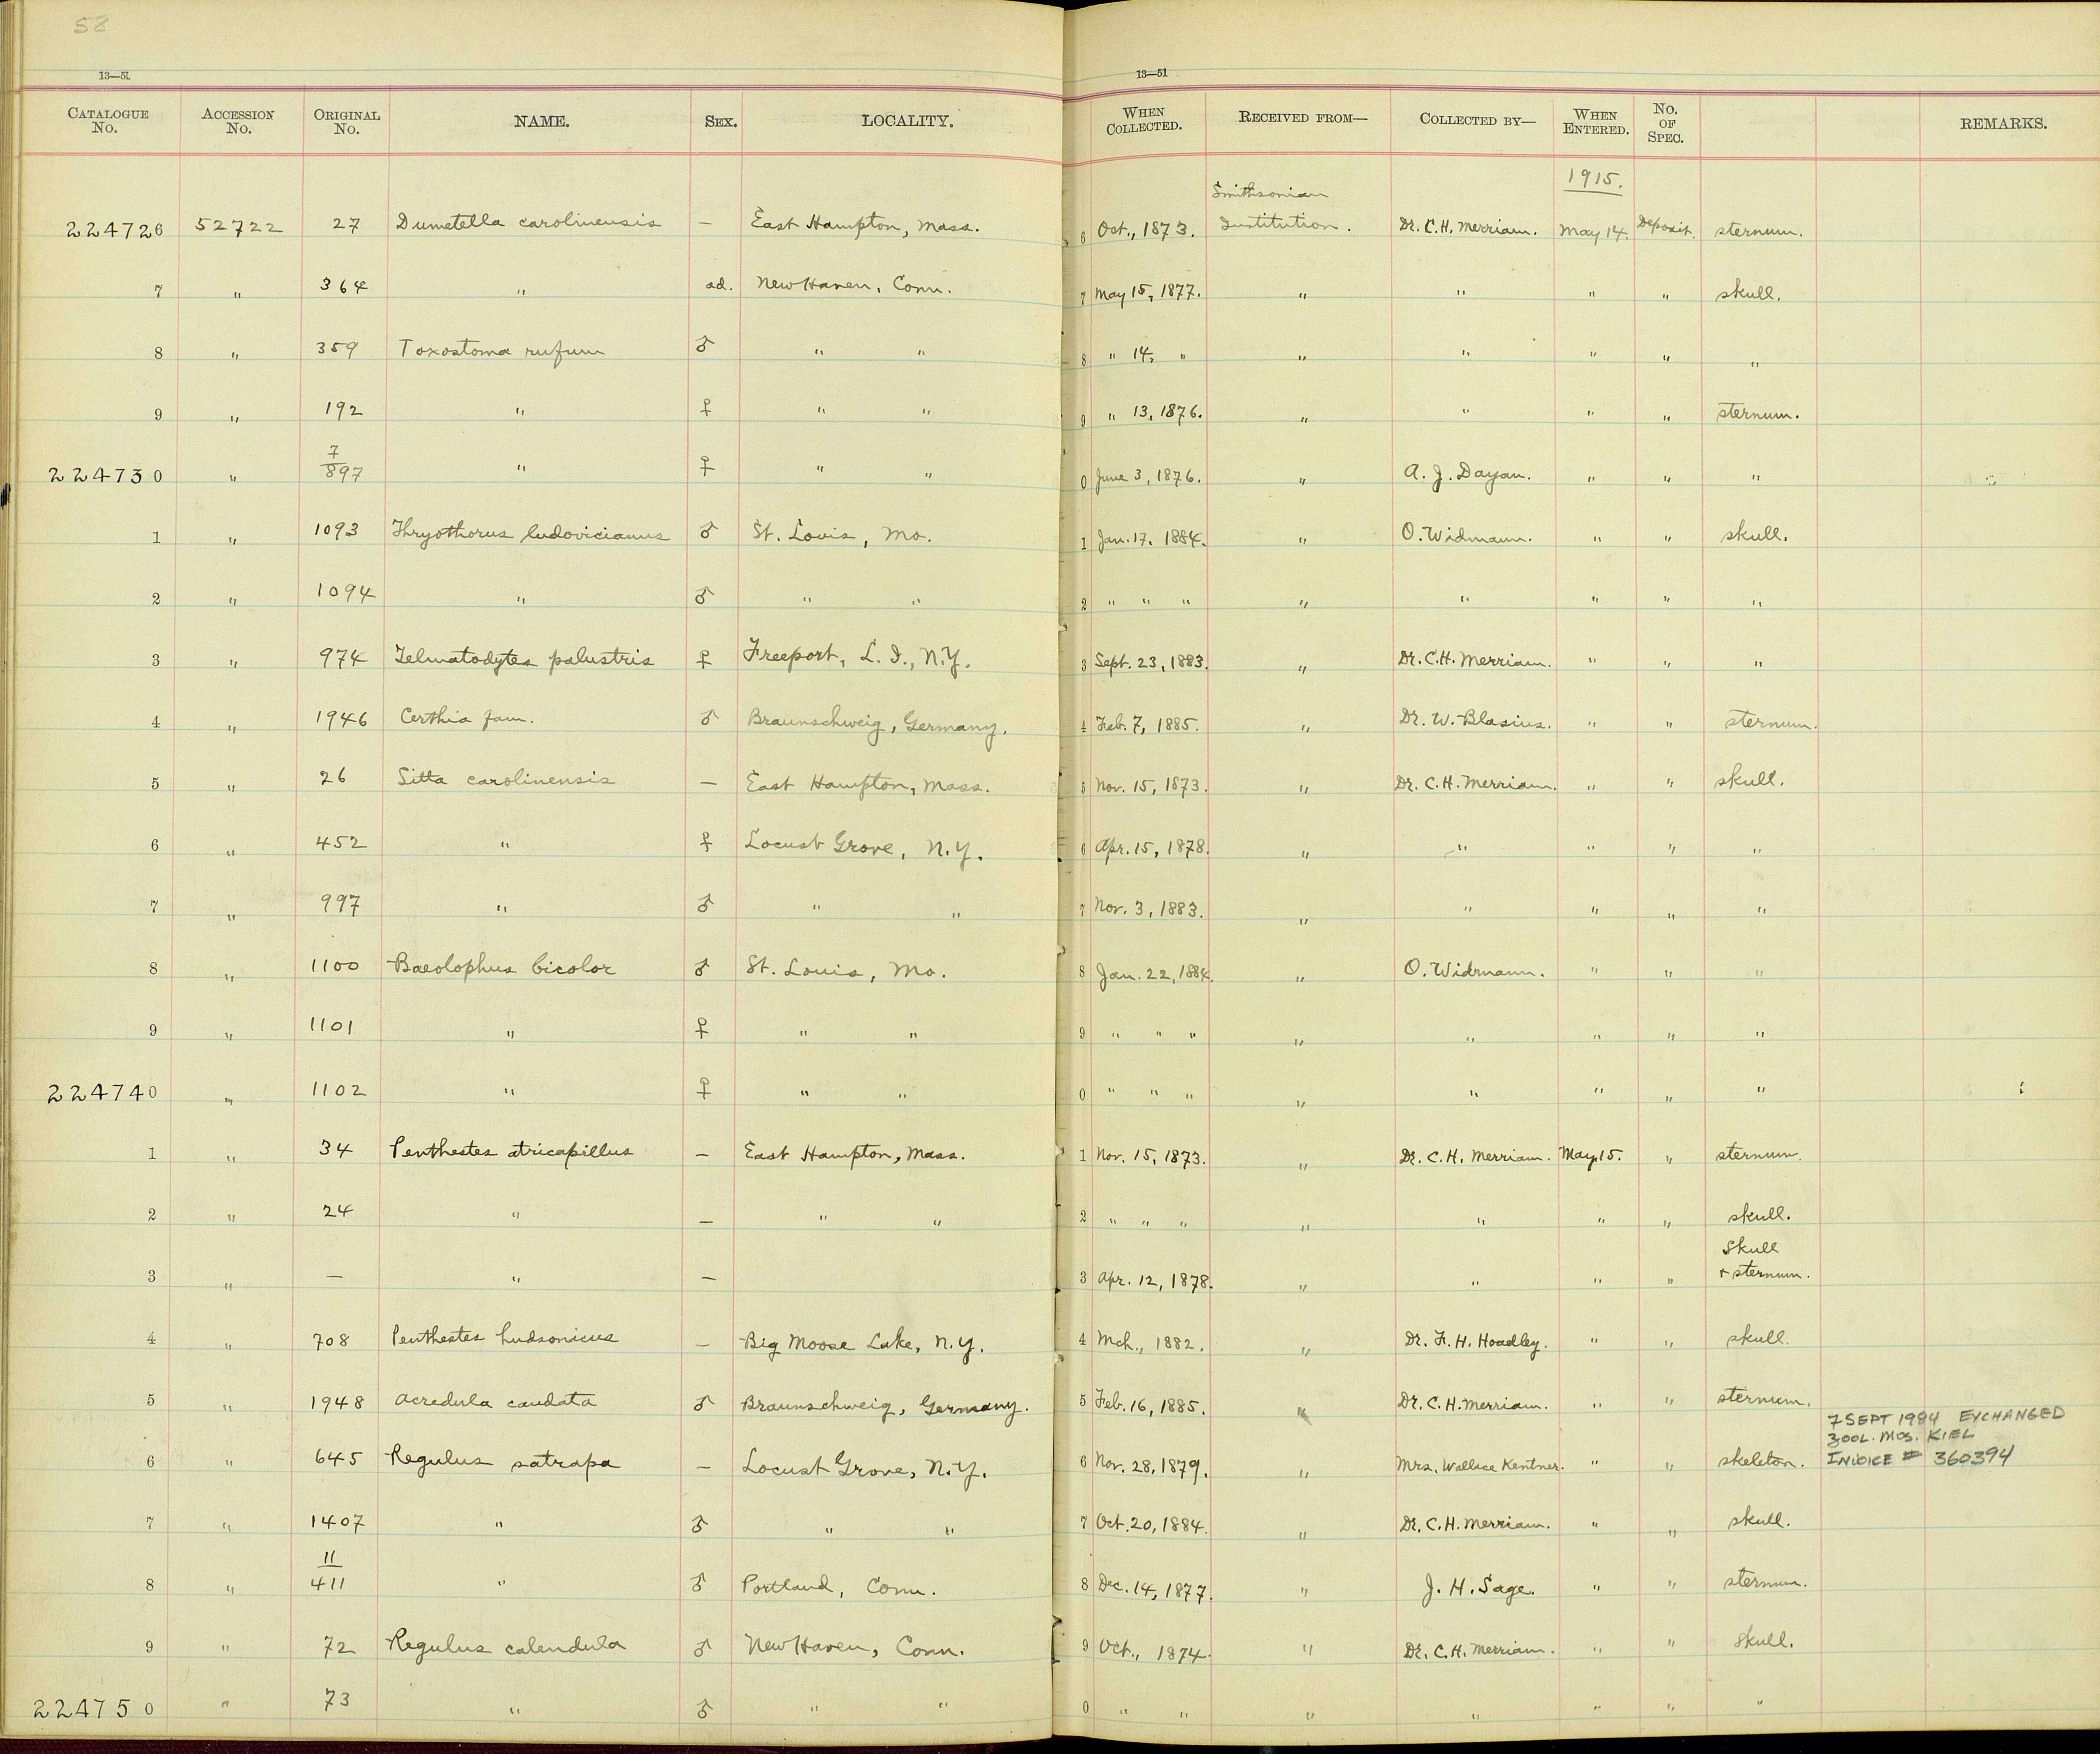 58
13—51
13—51
CATALOGUE No. ACCESSION No. ORIGINAL No. NAME. SEX. LOCALITY. WHEN COLLECTED. RECEIVED FROM— COLLECTED BY— WHEN ENTERED. No. OF SPEC. REMARKS.
1915.
Smithsonian
224726 52722 27 Dumetella carolinensis — East Hampton, Mass. 6 Oct., 1873. Institution. Dr. C.H. Merriam. May 14. Deposit. sternum.
7 " 364 " ad. New Haven, Conn. 7 May 15, 1877. " " " " skull.
8 " 359 Toxostoma rufum ♂ " " 8 " 14, " " " " " "
9 " 192 " ♀ " " 9 " 13, 1876. " " " " sternum.
7
224730 " 897 " ♀ " " 0 June 3, 1876. " A. J. Dayan. " " "
1 " 1093 Thryothorus ludovicianus ♂ St. Louis, Mo. 1 Jan. 17, 1884. " O. Widmann. " " skull.
2 " 1094 " ♂ " " 2 " " " " " " " "
3 " 974 Telmatodytes palustris ♀ Freeport, L. I., N.Y. 3 Sept. 23, 1883. " Dr. C.H. Merriam. " " "
4 " 1946 Certhia fam. ♂ Braunschweig, Germany. 4 Feb. 7, 1885. " Dr. W. Blasius. " " sternum.
5 " 26 Sitta carolinensis — East Hampton, Mass. 5 Nov. 15, 1873. " Dr. C.H. Merriam. " " skull.
6 " 452 " ♀ Locust Grove, N.Y. 6 Apr. 15, 1878. " " " " "
7 " 997 " ♂ " " 7 Nov. 3, 1883. " " " " "
8 " 1100 Baeolophus bicolor ♂ St. Louis, Mo. 8 Jan. 22, 1884. " O. Widmann. " " "
9 " 1101 " ♀ " " 9 " " " " " " " "
224740 " 1102 " ♀ " " 0 " " " " " " " "
1 " 34 Penthestes atricapillus — East Hampton, Mass. 1 Nov. 15, 1873. " Dr. C.H. Merriam. May 15. " sternum.
2 " 24 " — " " 2 " " " " " " " skull.
Skull
3 " — " — 3 Apr. 12, 1878. " " " " + sternum.
4 " 708 Penthestes hudsonicus — Big Moose Lake, N.Y. 4 Mch., 1882. " Dr. F. H. Hoadley. " " skull.
5 " 1948 Acredula caudata ♂ Braunschweig, Germany. 5 Feb. 16, 1885. " Dr. C.H. Merriam. " " sternum.
7 SEPT 1984 EXCHANGED
ZOOL. MUS. KIEL
6 " 645 Regulus satrapa — Locust Grove, N.Y. 6 Nov. 28, 1879. " Mrs. Wallace Kentner. " " skeleton. INVOICE # 360394
7 " 1407 " ♂ " " 7 Oct. 20, 1884. " Dr. C.H. Merriam. " " skull.
11
8 " 411 " ♂ Portland, Conn. 8 Dec. 14, 1877. " J. H. Sage. " " sternum.
9 " 72 Regulus calendula ♂ New Haven, Conn. 9 Oct., 1874. " Dr. C.H. Merriam. " " skull.
224750 " 73 " ♂ " " 0 " " " " " " "